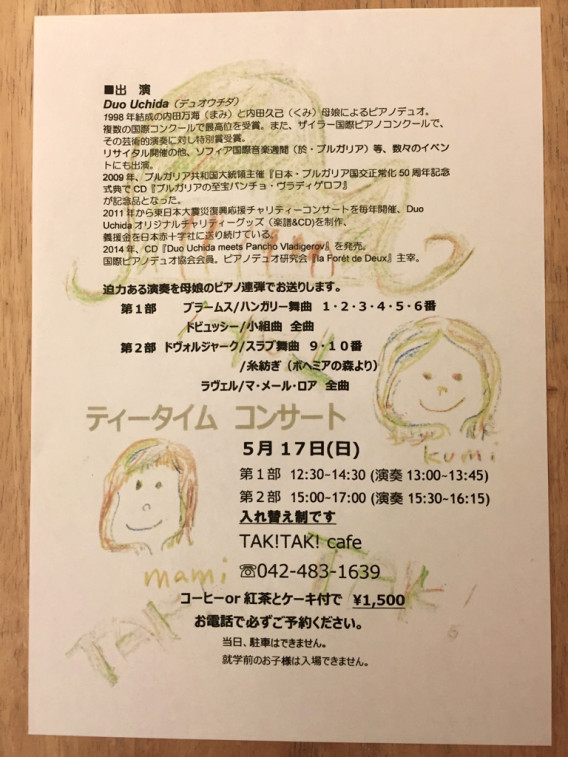 ■出　演
Duo Uchida（デュオウチダ）
1998年結成の内田万海（まみ）と内田久己（くみ）母娘によるピアノデュオ。
複数の国際コンクールで最高位を受賞。また、ザイラー国際ピアノコンクールで、
その芸術的演奏に対し特別賞受賞。
リサイタル開催の他、ソフィア国際音楽週間（於・ブルガリア）等、数々のイベン
トにも出演。
2009年、ブルガリア共和国大統領主催『日本・ブルガリア国交正常化50周年記念
式典でCD『ブルガリアの至宝パンチョ・ヴラディゲロフ』
が記念品となった。
2011年から東日本大震災復興応援チャリティーコンサートを毎年開催、Duo
Uchidaオリジナルチャリティーグッズ（楽譜&CD)を制作、
義援金を日本赤十字社に送り続けている。
2014年、CD『Duo Uchida meets Pancho Vladigerov』を発売。
国際ピアノデュオ協会会員。ピアノデュオ研究会『la Forêt de Deux』主宰。
迫力ある演奏を母娘のピアノ連弾でお送りします。
第１部　ブラームス/ハンガリー舞曲　1・2・3・4・5・6番
ドビュッシー/小組曲　全曲
第２部　ドヴォルジャーク/スラブ舞曲　9・10番
/糸紡ぎ（ボヘミアの森より）
ラヴェル/マ・メール・ロア　全曲
ティータイム　コンサート
kumi
５月１７日(日)
第１部　12:30~14:30 (演奏 13:00~13:45)
第２部　15:00~17:00 (演奏 15:30~16:15)
入れ替え制です
TAK!TAK! cafe
mami
☏042-483-1639
コーヒーor 紅茶とケーキ付で　¥1,500
お電話で必ずご予約ください。
当日、駐車はできません。
就学前のお子様は入場できません。
Tak Tak!